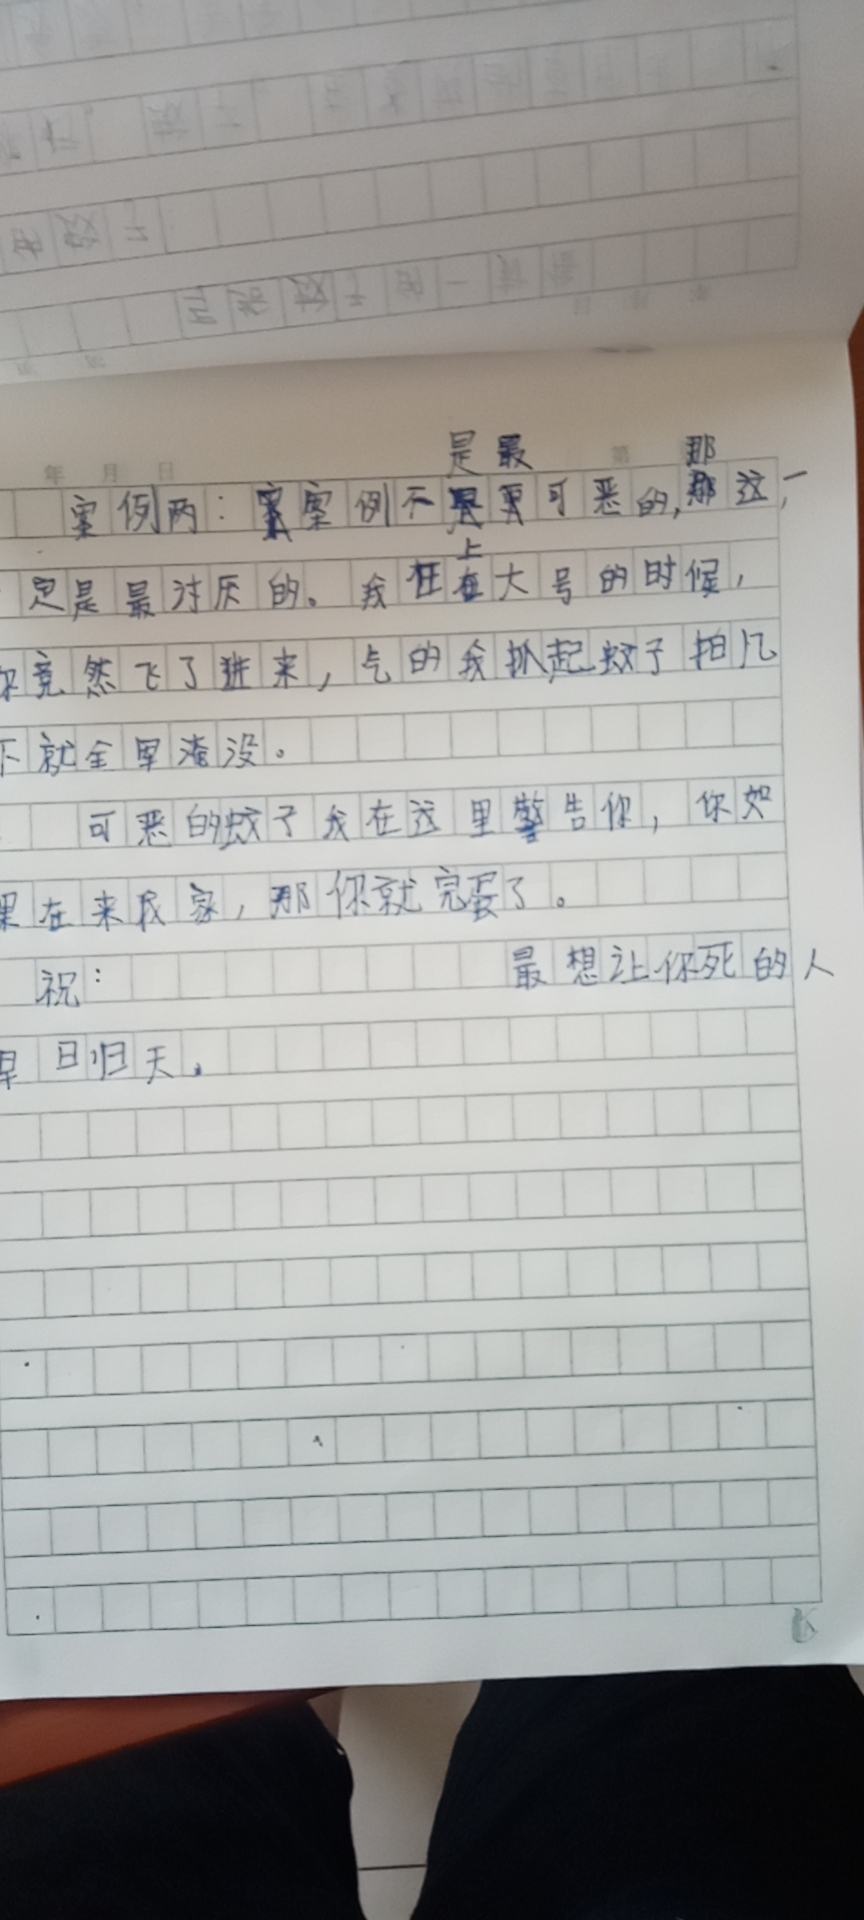 年 月 日 第
案例两：案例不是最可恶的，那这一
足是最讨厌的。我在上大号的时候，
你竟然飞了进来，气的我抓起蚊子拍几
下就全军淹没。
可恶的蚊子我在这里警告你，你如
果在来我家，那你就完蛋了。
祝： 最想让你死的人
早日归天。